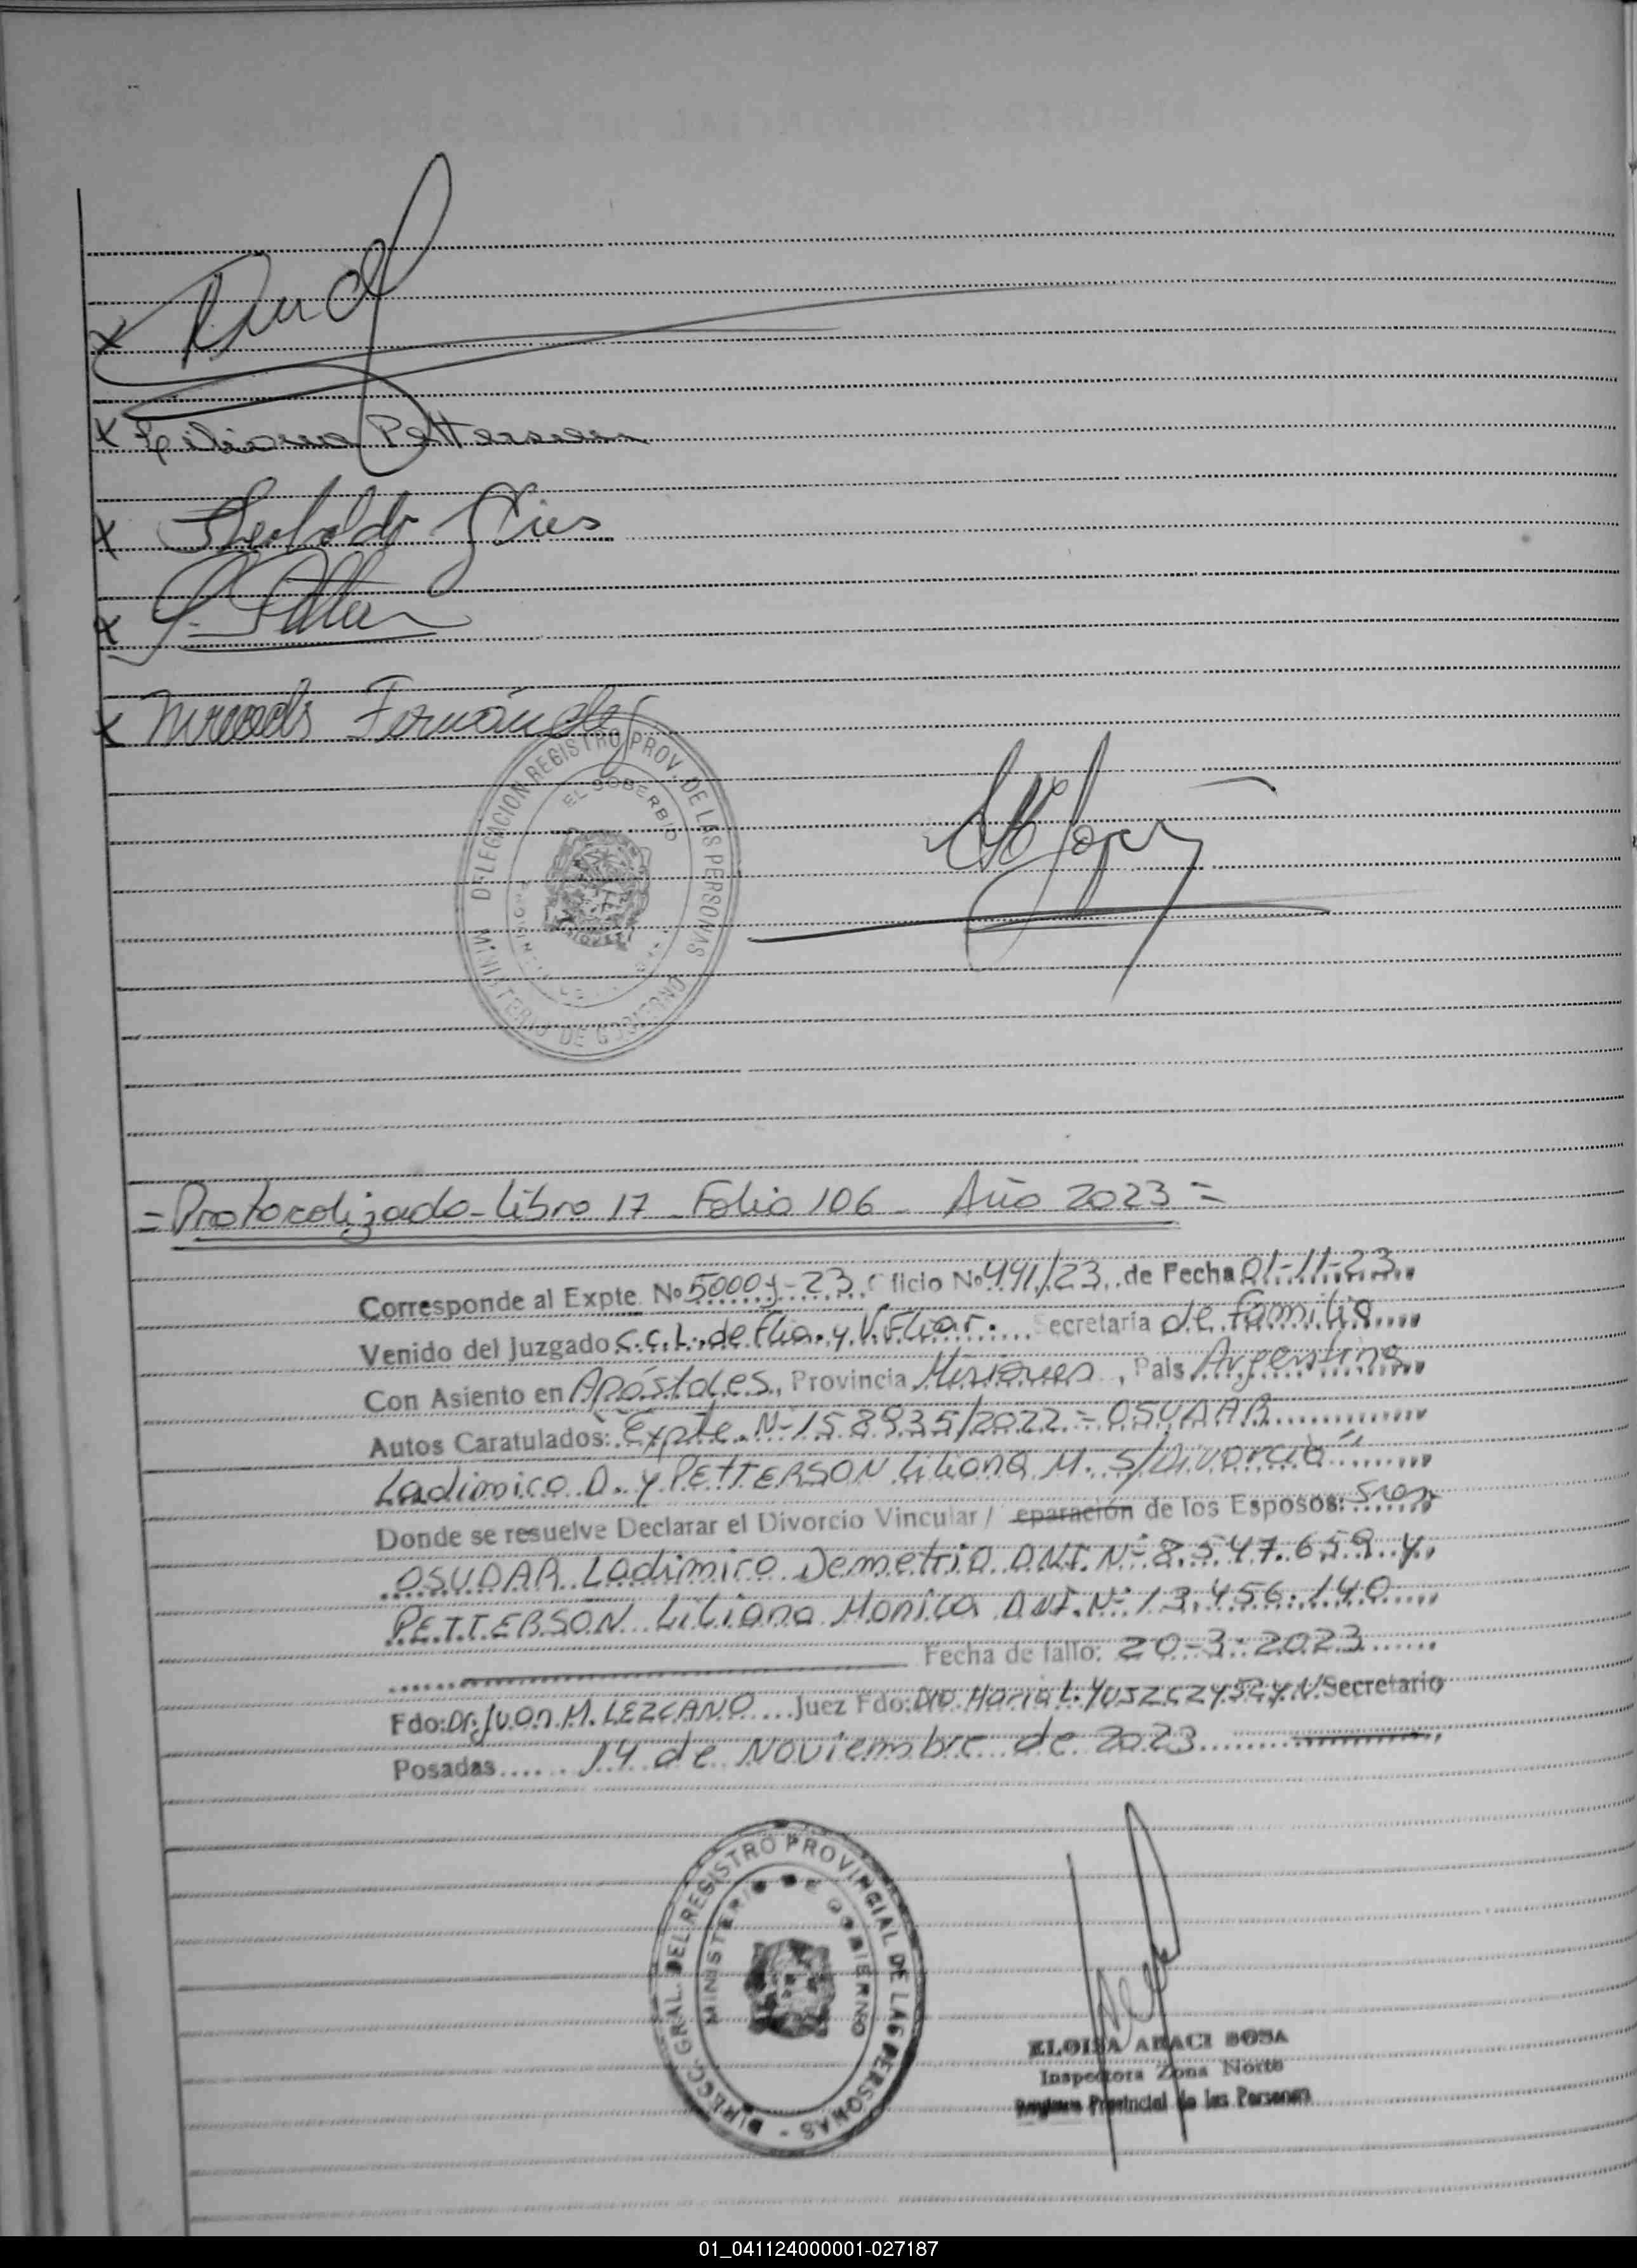 x
x Liliana Petterson
x Teobaldo Gries
x
x Mercedes Fernández
DELEGACION REGISTRO PROV. DE LAS PERSONAS
EL SOBERBIO
MINISTERIO DE GOBIERNO
MISIONES
= Protocolizado - Libro 17 - Folio 106 - Año 2023 =
Corresponde al Expte. Nº 5000 -23 Oficio Nº 491/23 de Fecha 01-11-23
Venido del Juzgado C.C.L. de Flia. y V. Fliar. Secretaria de familia
Con Asiento en Apóstoles, Provincia Misiones, Pais Argentina
Autos Caratulados: "Expte. Nº 158935/2022 = OSUDAR
Ladimiro D. y PETTERSON Liliana M. S/Divorcio"
Donde se resuelve Declarar el Divorcio Vincular / eparación de los Esposos: Sres
OSUDAR Ladimiro Demetrio D.N.I. Nº 8.547.659 y
PETTERSON Liliana Monica DNI. Nº 13.456.140
Fecha de fallo: 20-3-2023
Fdo: Dr. Juan M. LEZCANO Juez Fdo: Dra. Maria L. YUSZCZYSZYN Secretario
Posadas 14 de Noviembre de 2023
DIRECC. GRAL. DEL REGISTRO PROVINCIAL DE LAS PERSONAS -
MINISTERIO DE GOBIERNO
ELOISA ARACI SOSA
Inspectora Zona Norte
Registro Provincial de las Personas
01_041124000001-027187